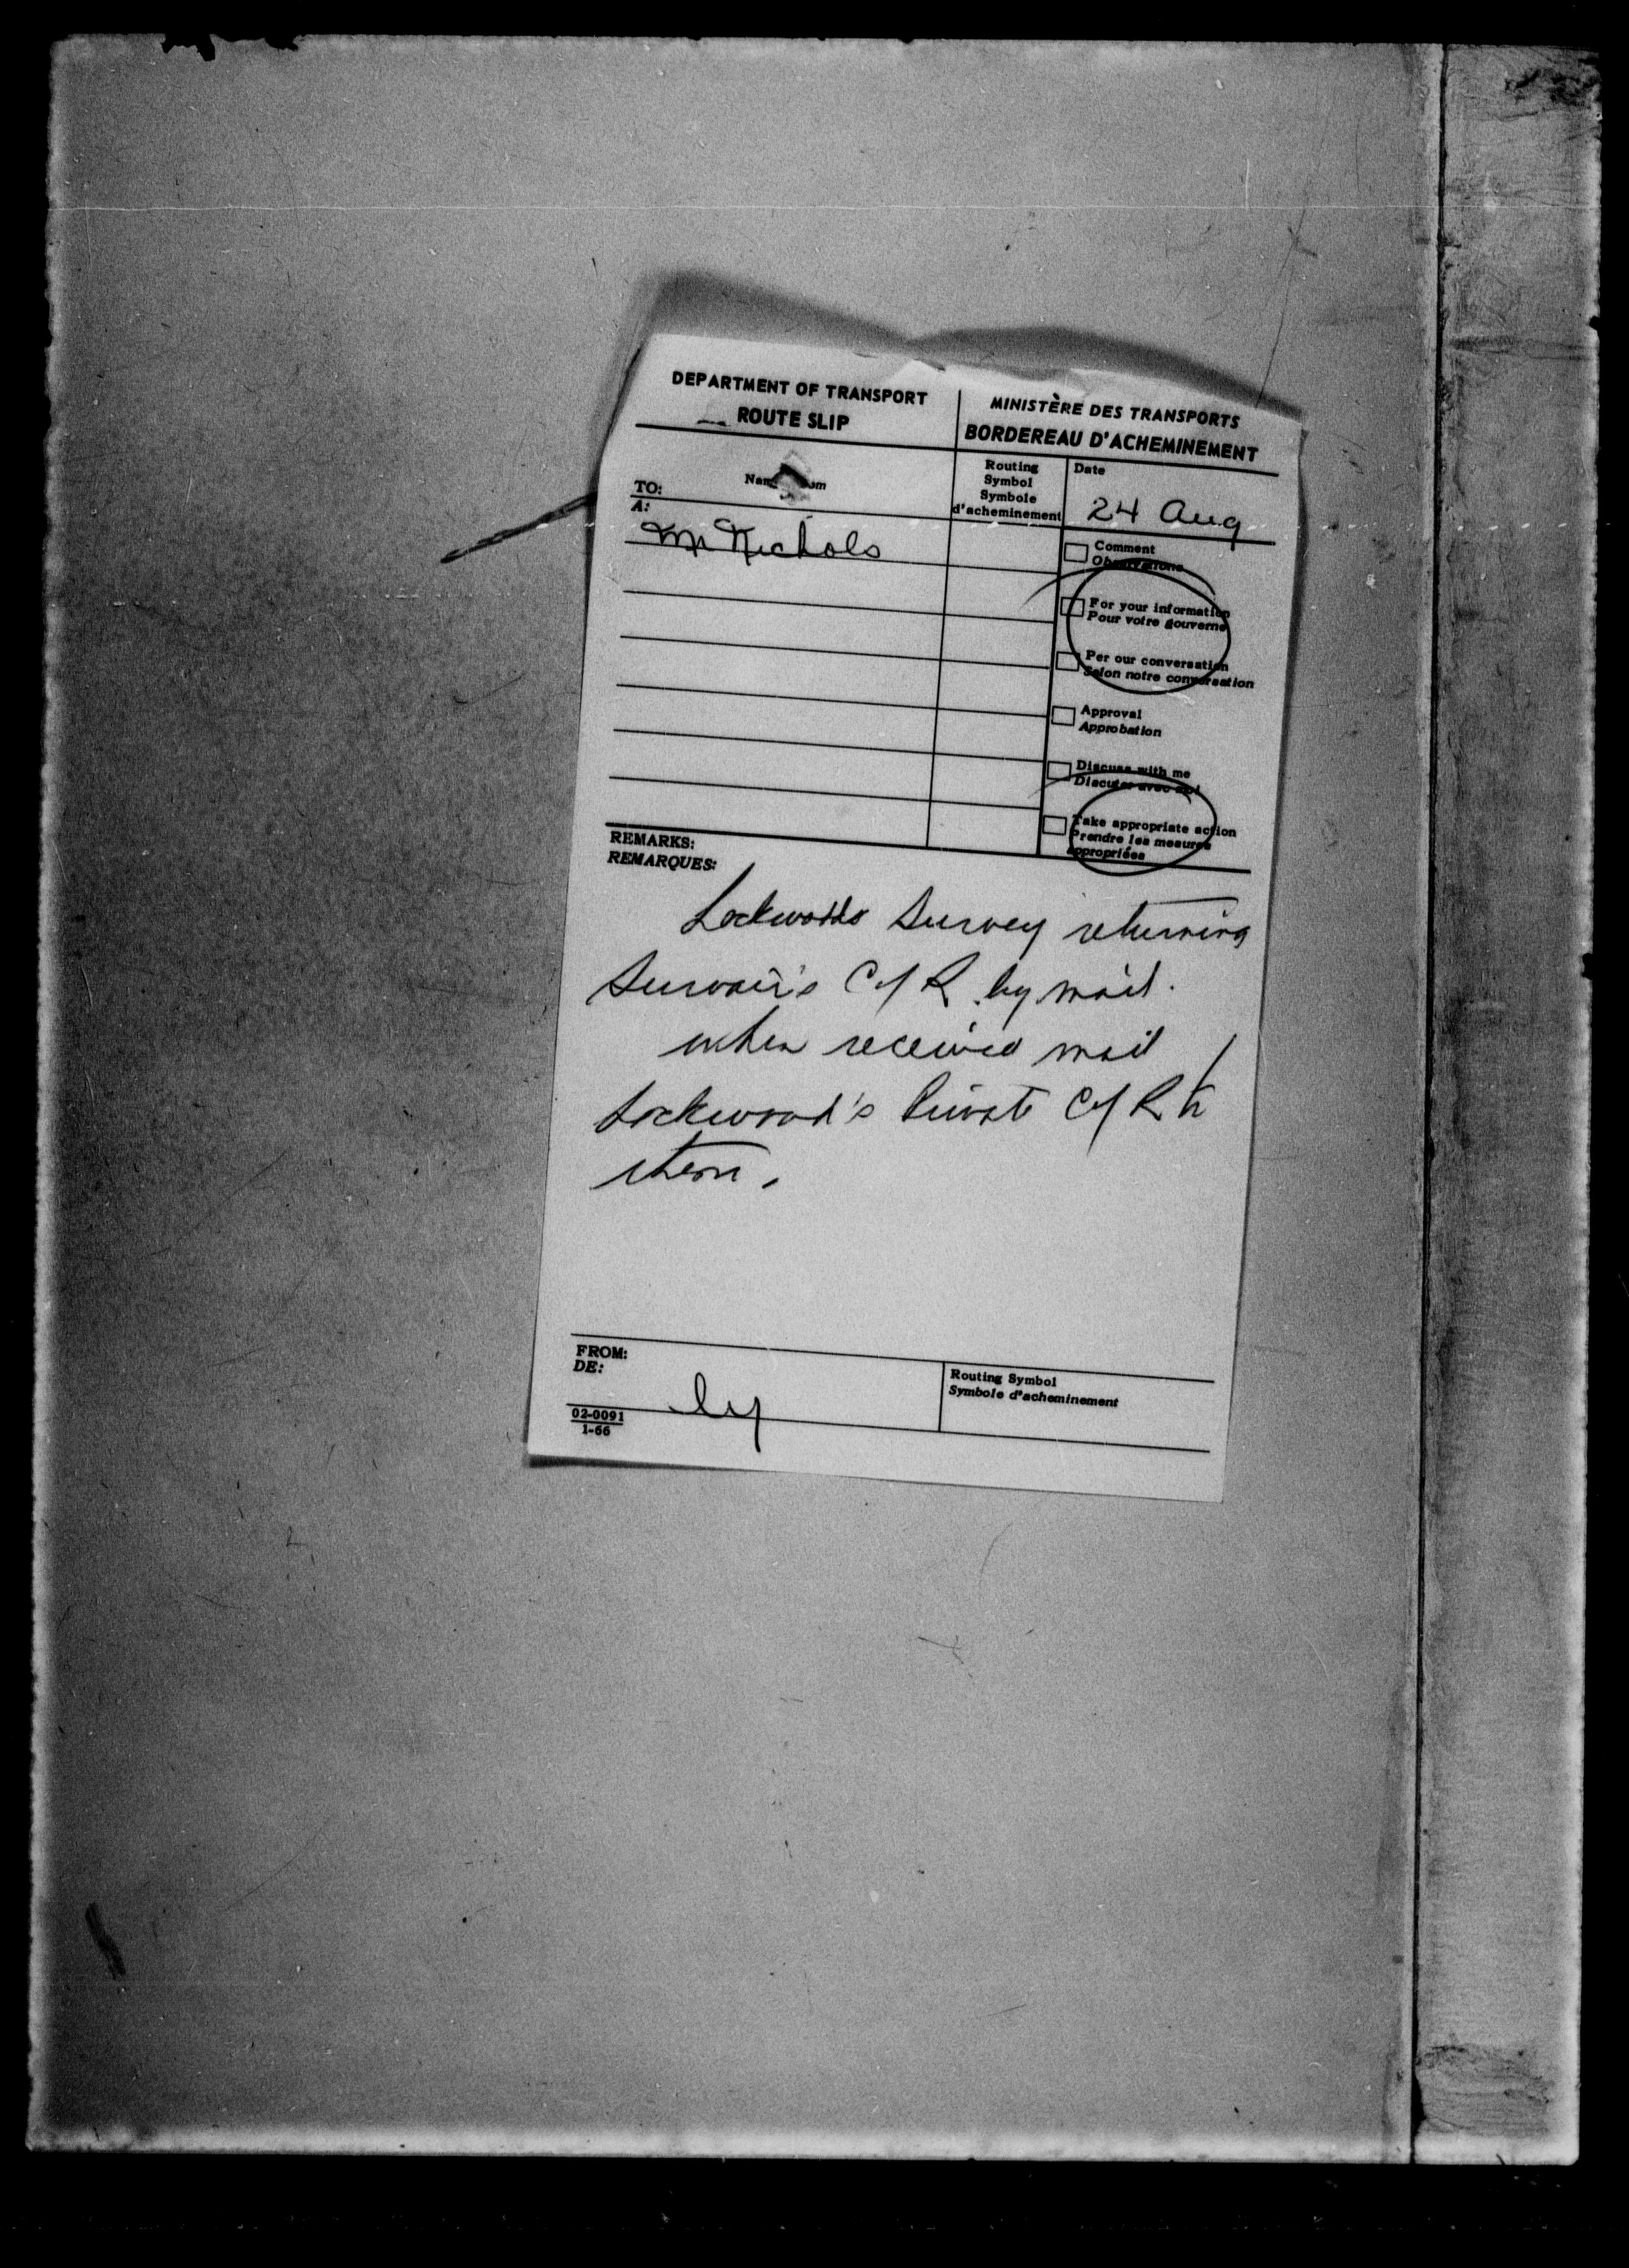 DEPARTMENT OF TRANSPORT
ROUTE SLIP
MINISTÈRE DES TRANSPORTS
BORDEREAU D'ACHEMINEMENT
TO:
A:
Routing
Symbol
Symbole
d'acheminement
Date
24 Aug
Mr Nichols
Comment
Observations
For your information
Pour votre gouverne
Per our conversation
Selon notre conversation
Approval
Approbation
Discuss with me
Discuter avec moi
Take appropriate action
Prendre les mesures
appropriées
REMARKS:
REMARQUES:
Lockwoods Survey returning
Survair's C of R by mail.
when received mail
Lockwood's Private C of R to
them.
FROM:
DE:
Routing Symbol
Symbole d'acheminement
02-0091
1-66